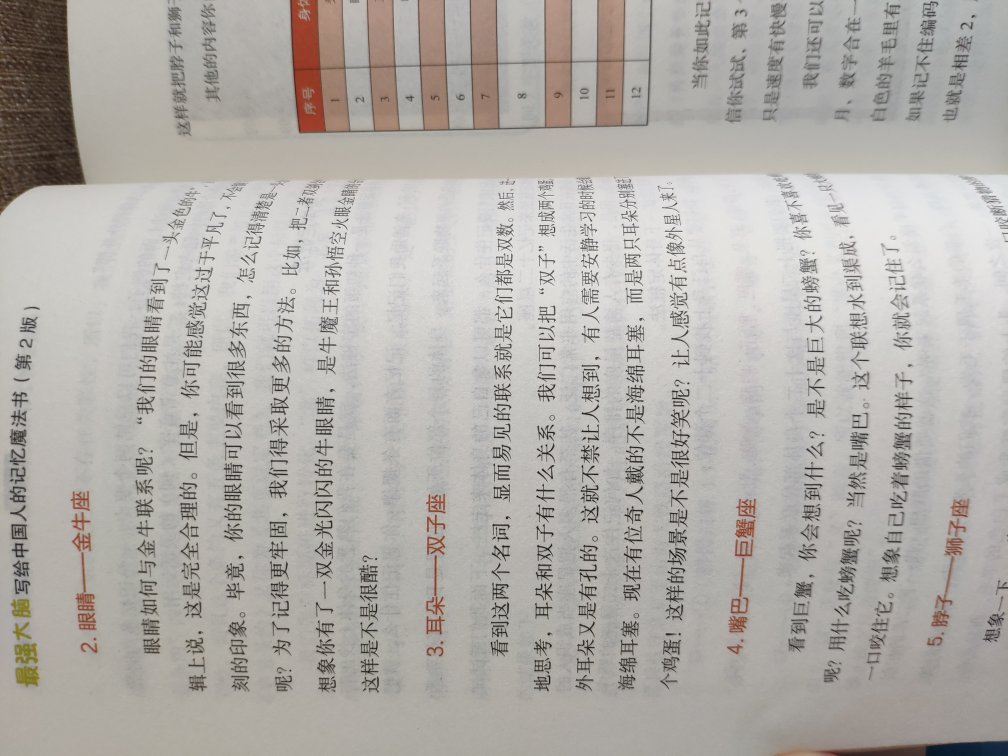 最强大脑 写给中国人的记忆魔法书（第 2 版）
2. 眼睛——金牛座
眼睛如何与金牛联系呢？“我们的眼睛看到了一头金色的牛
辑上说，这是完全合理的。但是，你可能感觉这过于平凡了，不会
刻的印象。毕竟，你的眼睛可以看到很多东西，怎么记得清楚是一
呢？为了记得更牢固，我们得采取更多的方法。比如，把二者
想象你有了一双金光闪闪的牛眼睛，是牛魔王和孙悟空火眼金睛的
这样是不是很酷？
3. 耳朵——双子座
看到这两个名词，显而易见的联系就是它们都是双数。然后，
地思考，耳朵和双子有什么关系。我们可以把“双子”想成两个鸡蛋
外耳朵又是有孔的。这就不禁让人想到，有人需要安静学习的时候
海绵耳塞。现在有位奇人戴的不是海绵耳塞，而是两只耳朵分别塞
个鸡蛋！这样的场景是不是很好笑呢？让人感觉有点像外星人来了。
4. 嘴巴——巨蟹座
看到巨蟹，你会想到什么？是不是巨大的螃蟹？你喜不喜欢吃
呢？用什么吃螃蟹呢？当然是嘴巴。这个联想水到渠成，看见一只
一口咬住它。想象自己吃着螃蟹的样子，你就会记住了。
5. 脖子——狮子座
想象一下
这样就把脖子和狮
其他的内容你
序号 身体
1
2
3
4
5
6
7
8
9
10
11
12
当你如此记
信你试试、第 3
只是速度有快慢
我们还可以
月、数字合在一
白色的羊毛里有
如果记不住编码
也就是相差 2，